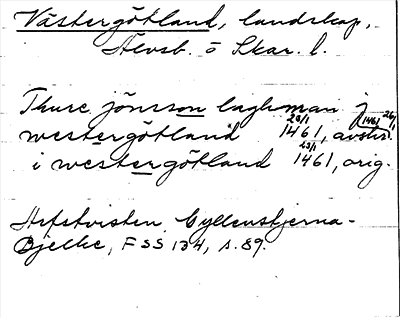 Västergötland, landskap,
Älvsb. o Skar. l.
Thure jönsson laghman j
westergötland 28/1 1461, avskr. 1461 28/1
i westergötland 28/1 1461, orig.
Arfstvisten Gyllenstjerna-
Bjelke, FSS 134, s. 89.